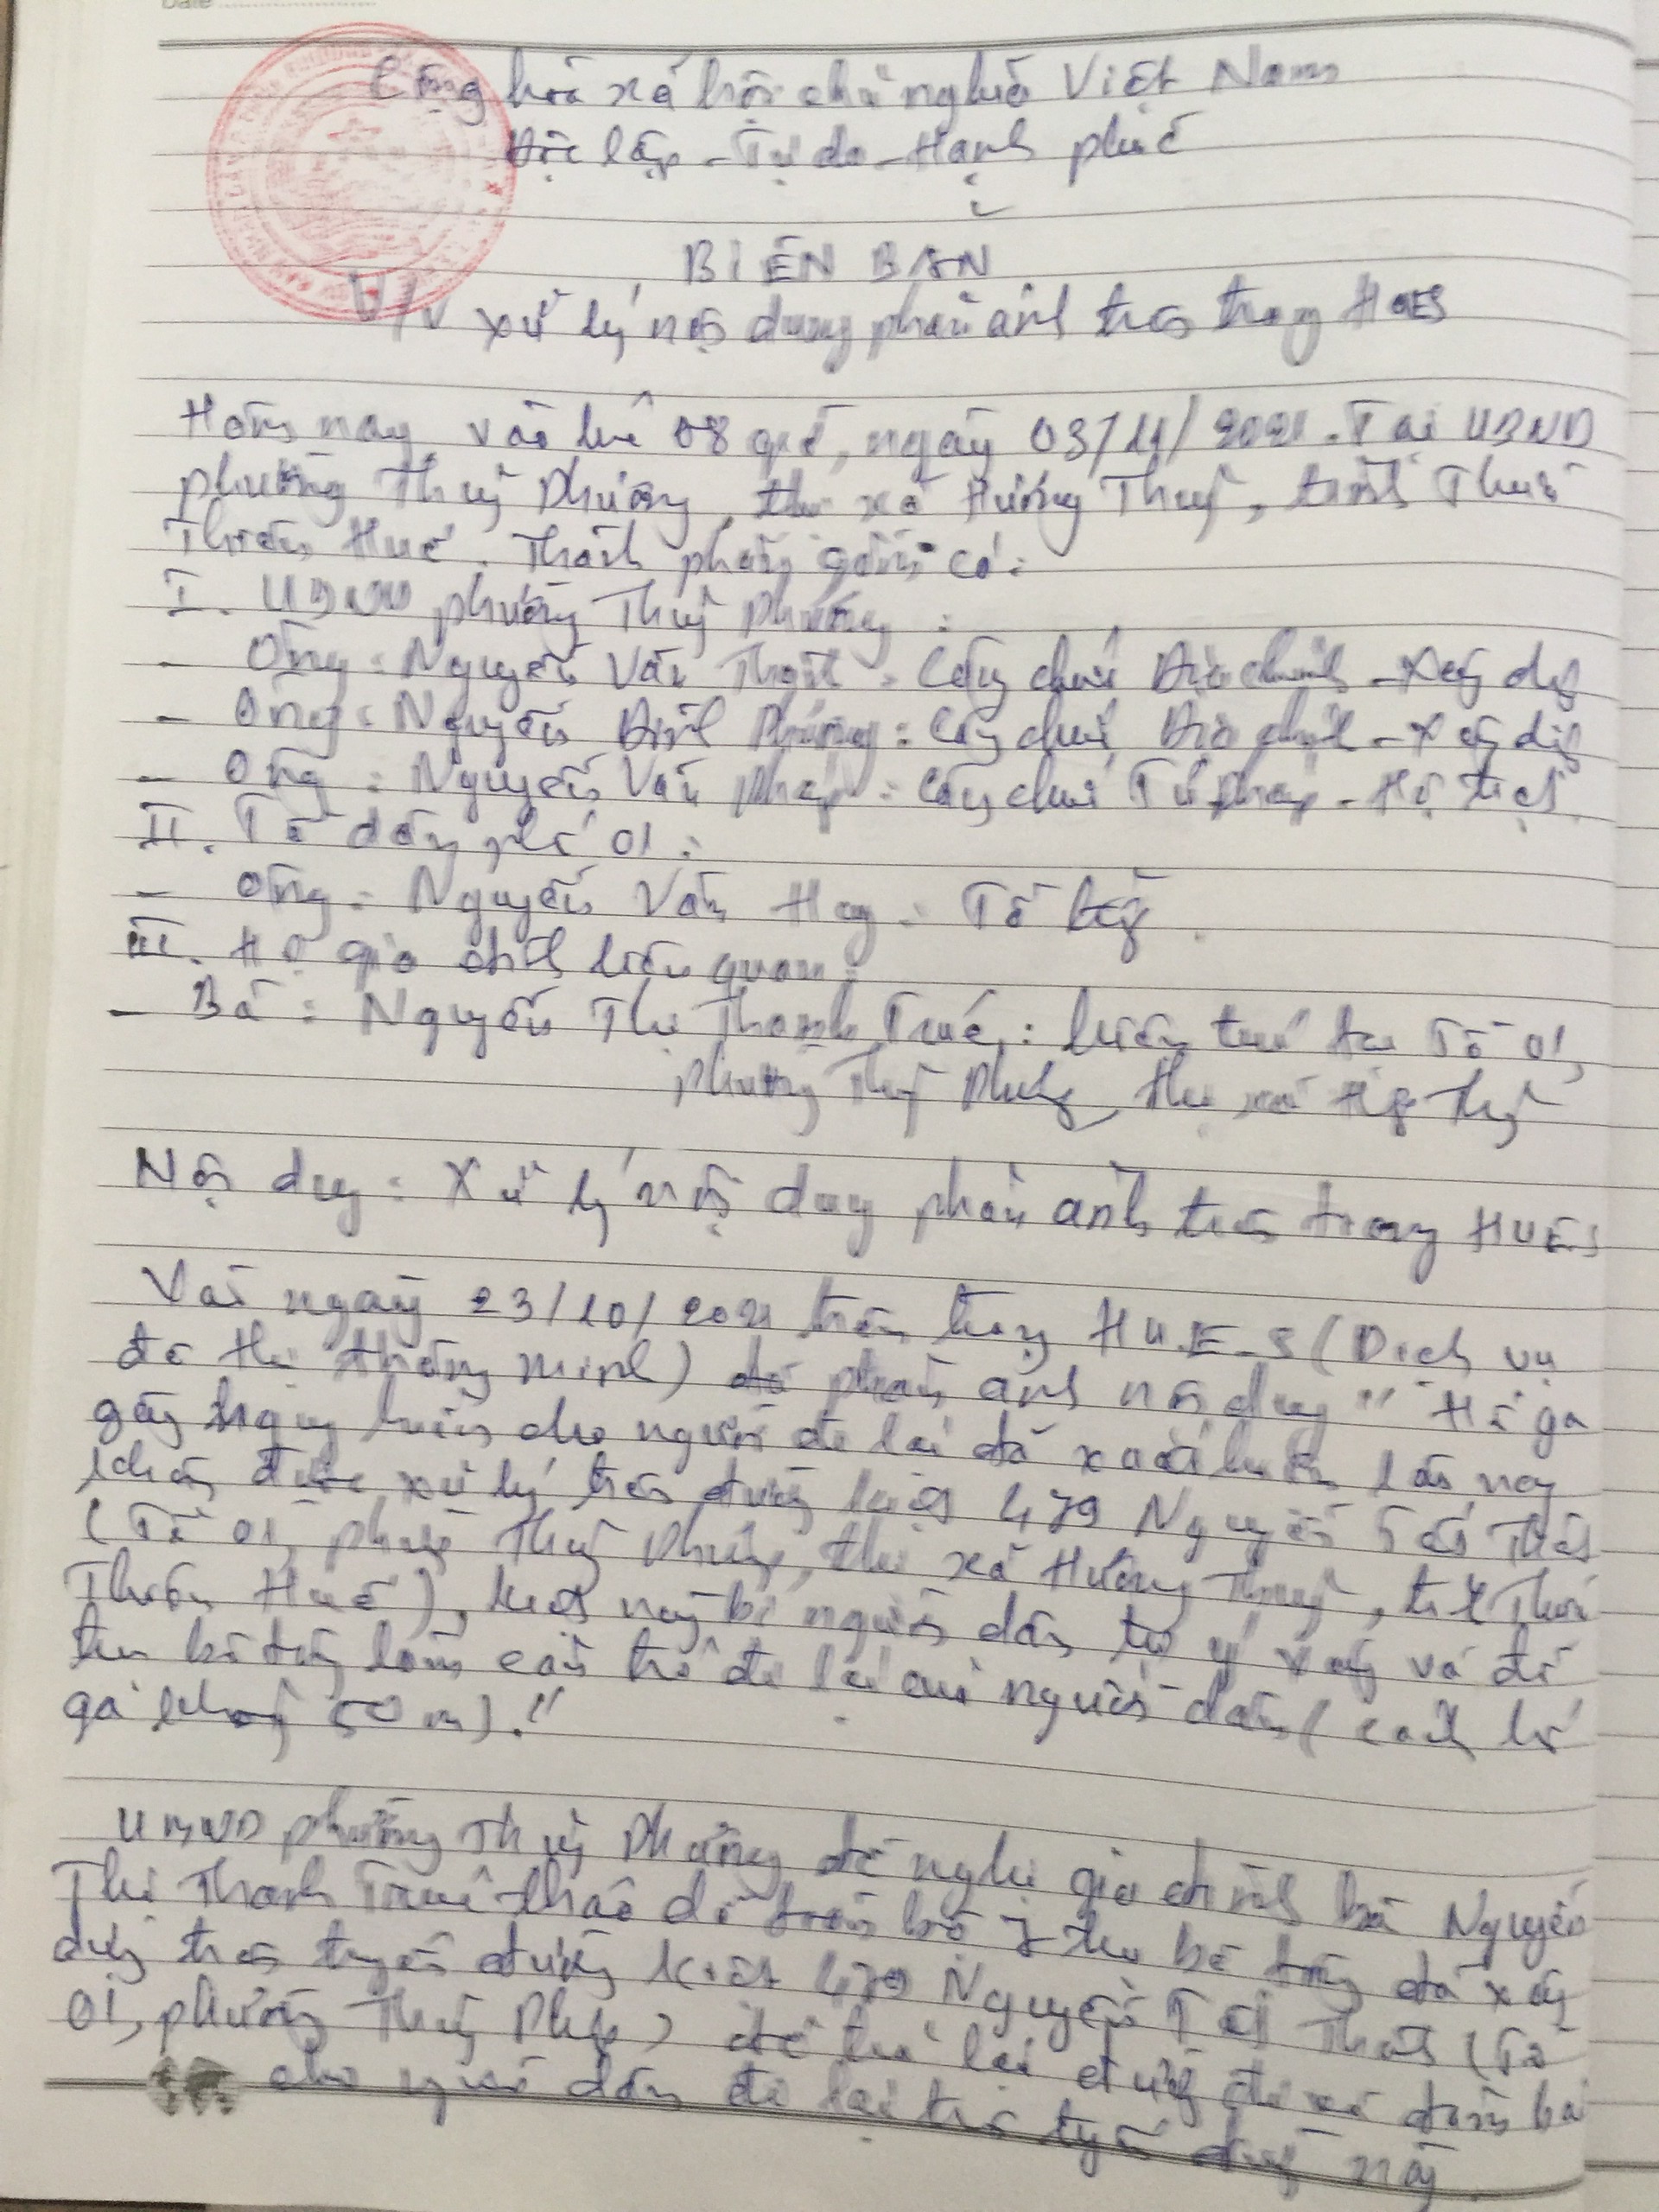 Date
Cộng hòa xã hội chủ nghĩa Việt Nam
Độc lập - Tự do - Hạnh phúc
BIÊN BẢN
V/v xử lý nội dung phản ánh trên trang HUES
Hôm nay, vào lúc 08 giờ, ngày 03/11/2021. Tại UBND
phường Thuỷ Phương, thị xã Hương Thuỷ, tỉnh Thừa
Thiên Huế. Thành phần gồm có:
I. UBND phường Thuỷ Phương:
- Ông: Nguyễn Văn Thành: Công chức Địa chính - Xây dựng
- Ông: Nguyễn Đình Phương: Công chức Địa chính - Xây dựng
- Ông: Nguyễn Văn Pháp: Công chức Tư pháp - Hộ tịch
II. Tổ dân phố 01:
- Ông: Nguyễn Văn Hay: Tổ trưởng.
III. Hộ gia đình liên quan:
- Bà: Nguyễn Thị Thanh Trúc: hiện trú tại Tổ 01,
phường Thuỷ Phương, thị xã Hương Thuỷ
Nội dung: Xử lý nội dung phản ánh trên trang HUES
Vào ngày 23/10/2021 trên trang HUE-S (Dịch vụ
đô thị thông minh) đã phản ánh nội dung "Hố ga
gây nguy hiểm cho người đi lại đã xuất hiện lâu nay
không được xử lý trên đường kiệt 479 Nguyễn Tất Thành
(Tổ 01, phường Thuỷ Phương, thị xã Hương Thuỷ, tỉnh Thừa
Thiên Huế), kiệt này bị người dân tự ý xây và đổ
trụ bê tông làm cản trở đi lại của người dân (cách hố
ga khoảng 50m)."
UBND phường Thuỷ Phương đề nghị gia đình bà Nguyễn
Thị Thanh Trúc tháo dỡ toàn bộ trụ bê tông đã xây
dựng trên tuyến đường kiệt 479 Nguyễn Tất Thành (Tổ
01, phường Thuỷ Phương) để trả lại đường đi và đảm bảo
cho người dân đi lại trên tuyến đường này.